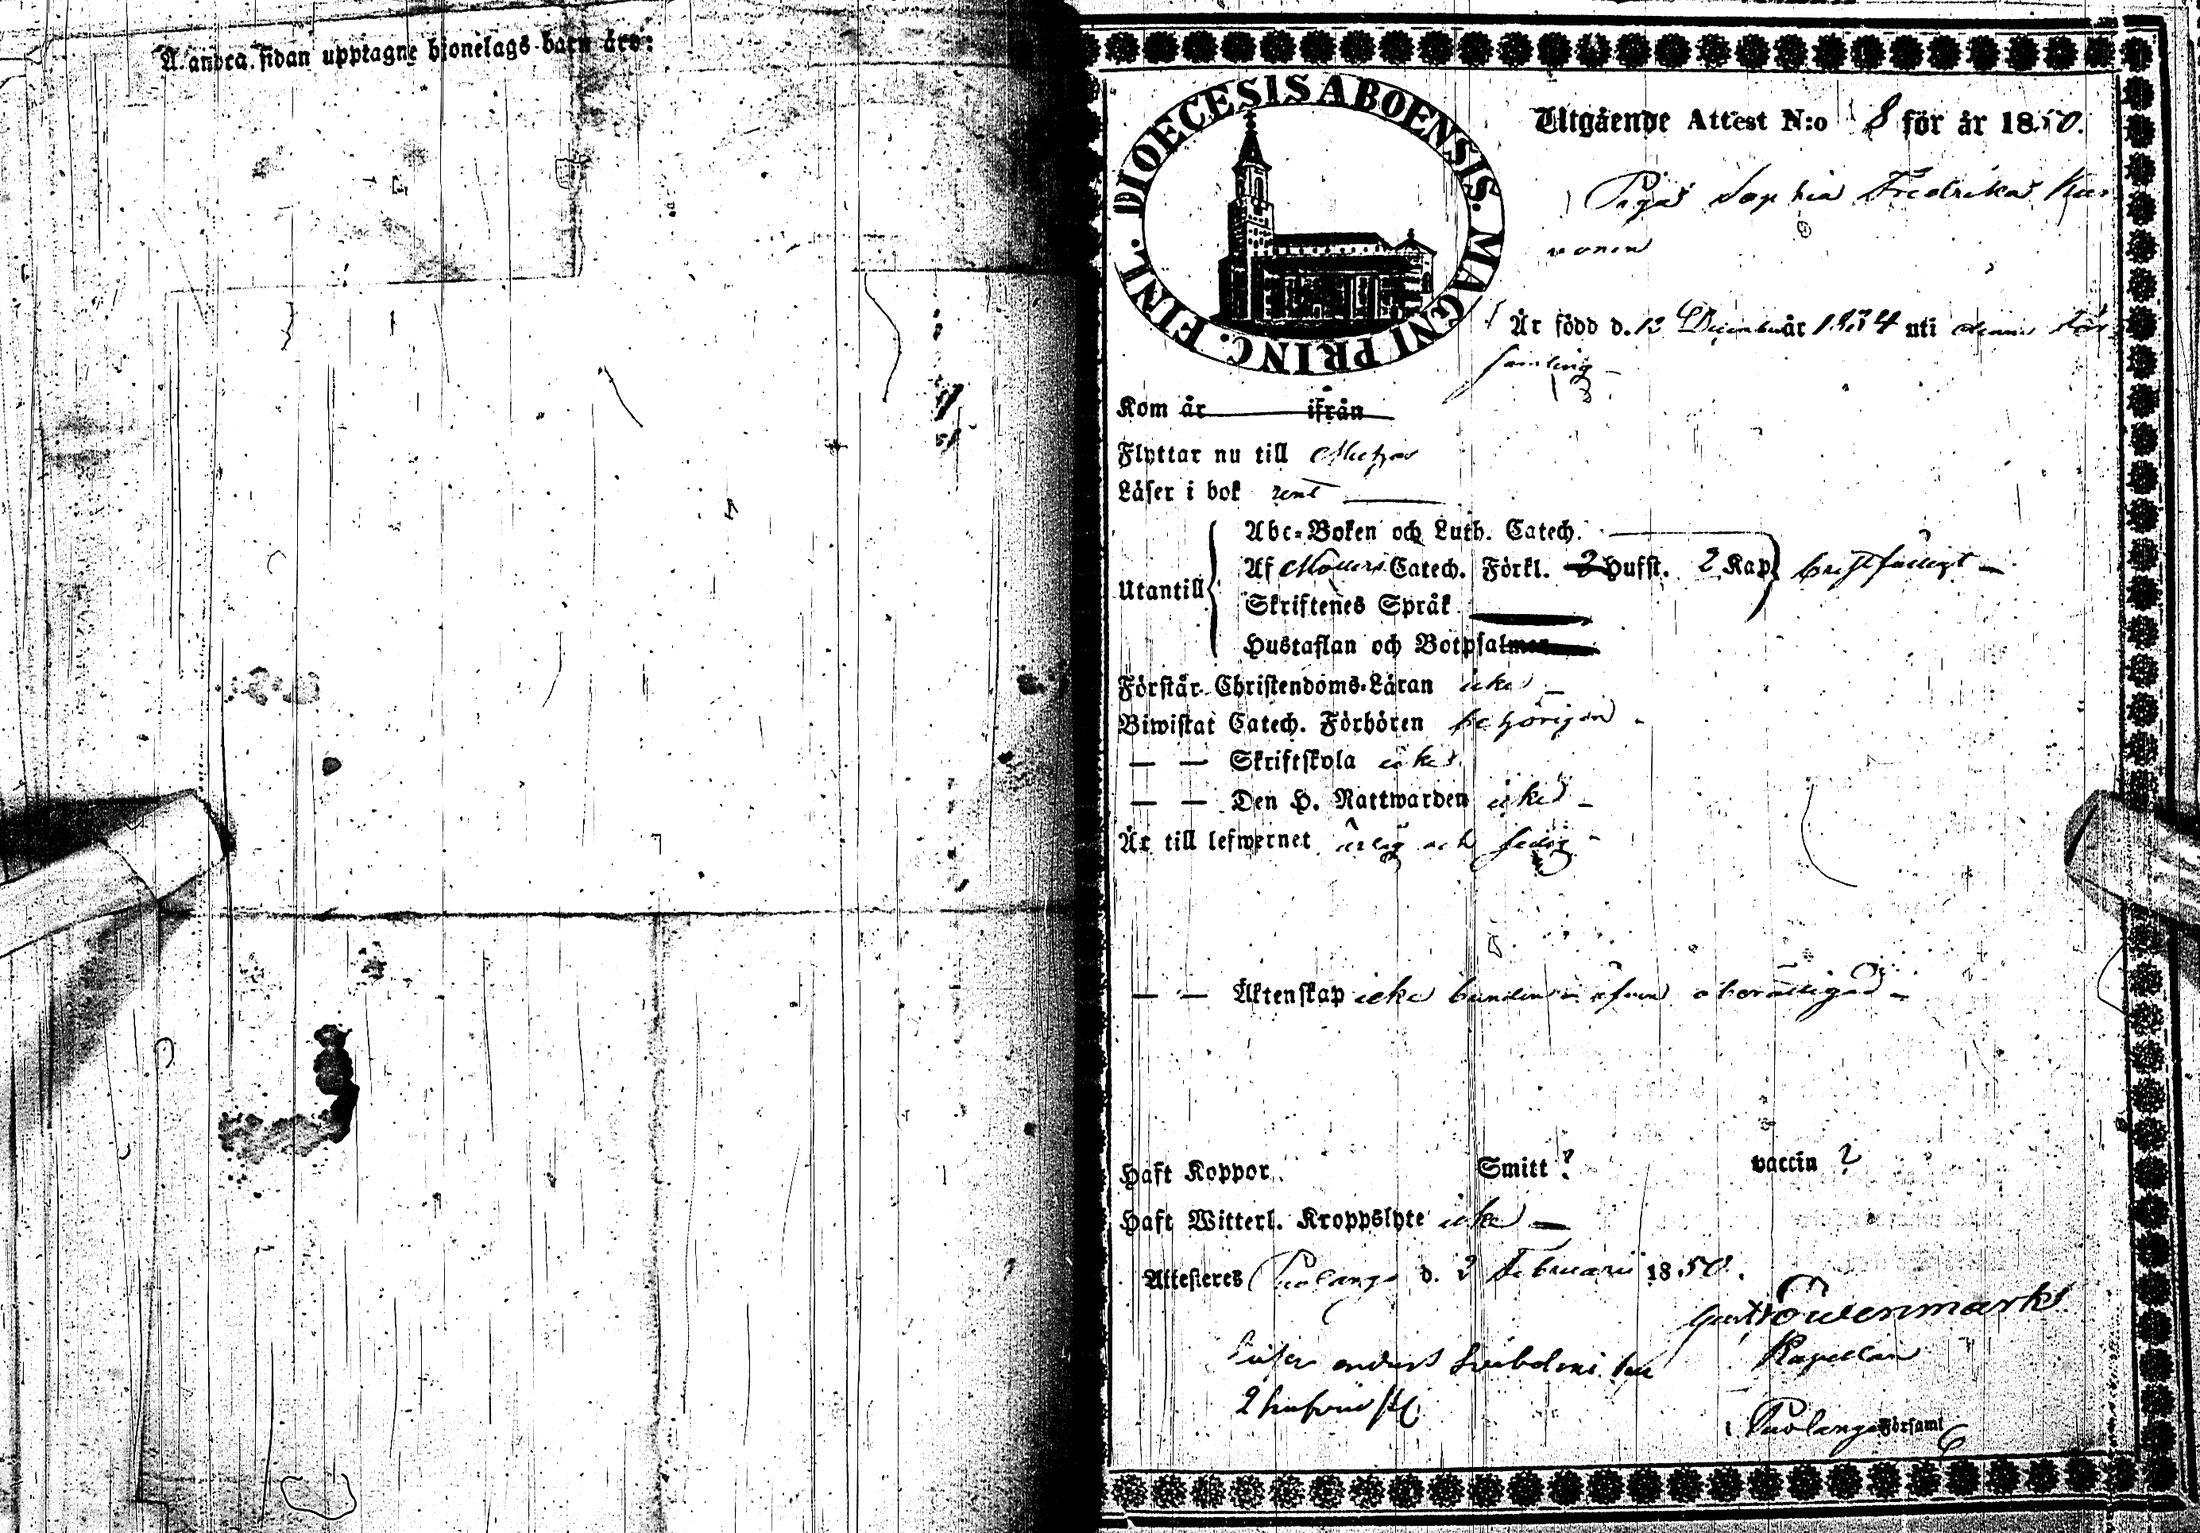 A andra sidan upptagne hjonelags barn äro:
DIOECESIS ABOENSIS. MAGNI PRINC. FINL.
Utgående Attest N:o 8 för år 1850.
Piga Sophia Fredrika
vonen
Är född d. 13 December år 1834 uti denna För
samling
Kom år ifrån
Flyttar nu till Muhos
Läser i bok rent
Abc-Boken och Luth. Catech.
Utantill
Af Möllers Catech. Förkl. 2 Hufst. 2 Kap bristfälligt
Skriftenes Språk
Hustaflan och Botpsalmer
Förstår Christendoms-Läran icke
Biwistat Catech. Förhören behörigen
— — Skriftskola icke
— — Den H. Nattwarden icke
Är till lefwernet ärlig och sedig
— — Äktenskap icke bunden
Haft Koppor Smitt ? vaccin ?
Haft Witterl. Kroppslyte icke
Attesteres Puolango d. 3 Februarii 1850.
Kapellan
i Puolango Församl